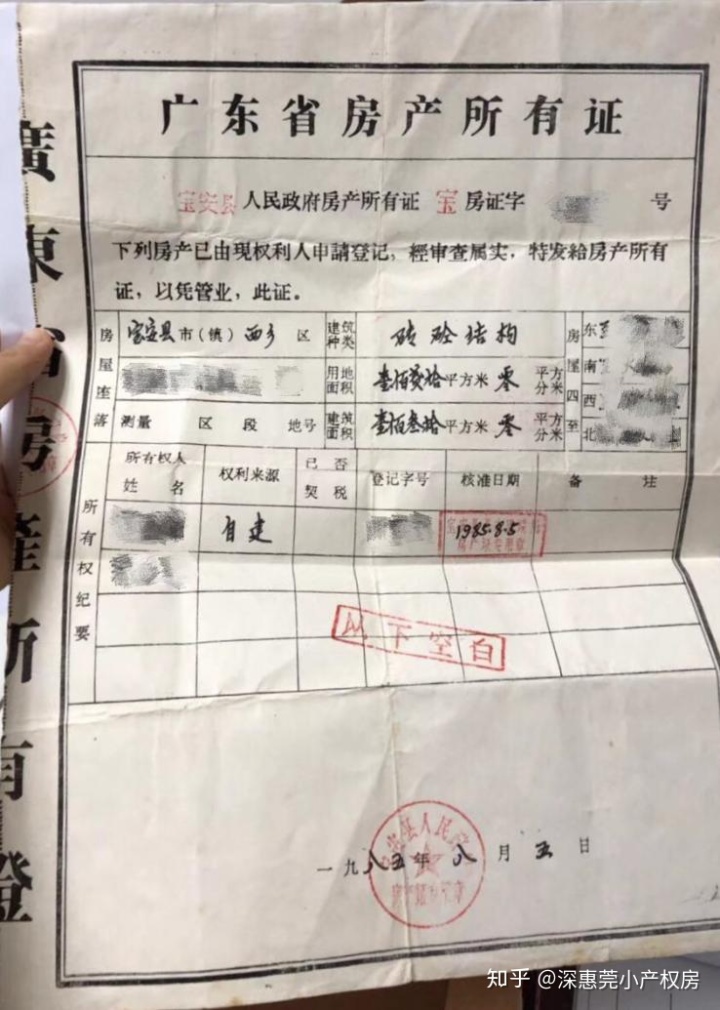 广东省房产所有证
宝安县人民政府房产所有证 宝 房证字 号
下列房产已由现权利人申請登记，經审查属实，特发給房产所有
证，以凭管业，此证。
房屋座落 宝安县市（镇）西乡 区 建筑种类 砖砼结构 房屋四至 东
用地面积 平方米 零 平方分米 南
西
测量 区 段 地号 建筑面积 壹佰叁拾平方米 零 平方分米 北
所有权纪要
所有权人姓名 权利来源 已否契税 登记字号 核准日期 备 注
自建 1985.8.5
以下空白
一九八五年 八 月 五 日
廣東省房產所有證
知乎 @深惠莞小产权房